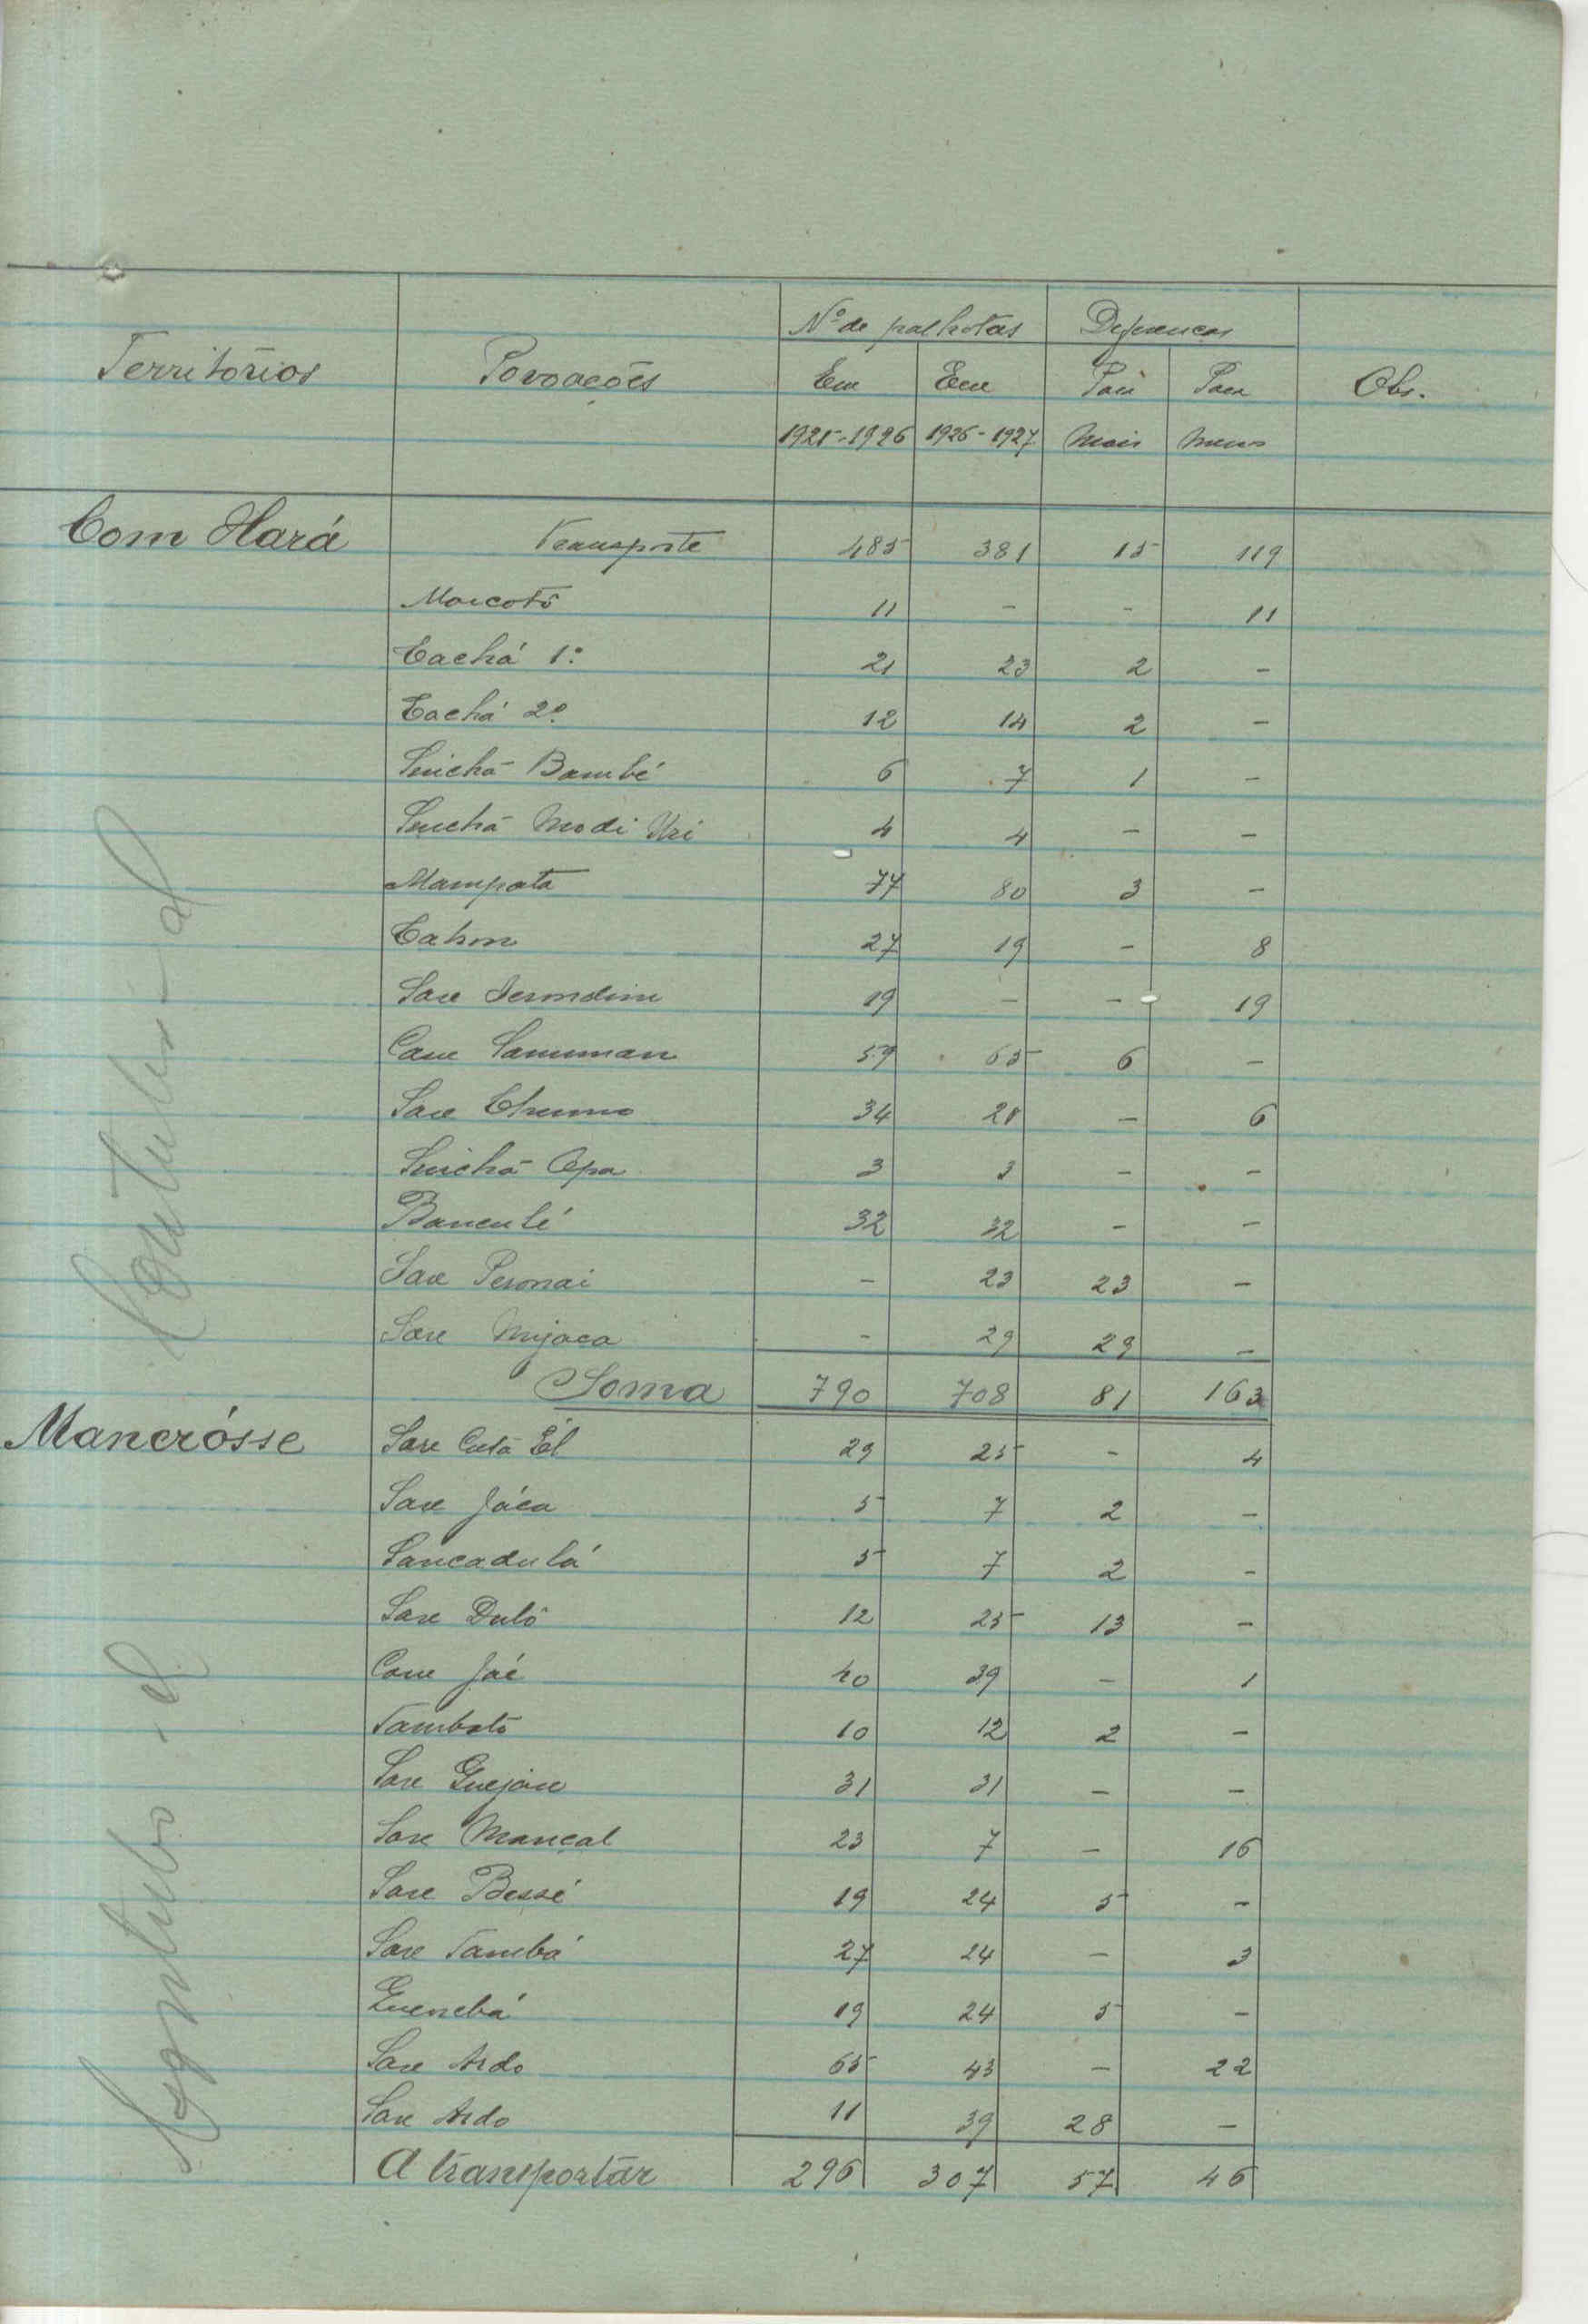 Nº de palhotas Diferenças
Territórios Povoações Em Em Para Para Obs.
1925-1926 1926-1927 Mais Menos
Com Hará Transporte 485 381 15 119
Marcotô 11 - - 11
Cachá 1º 21 23 2 -
Cachá 2º 12 14 2 -
Sinchã Bambé 6 7 1 -
Sinchã Modi Uri 4 4 - -
Mampata 77 80 3 -
27 19 - 8
Sare 19 - - 19
Samuman 59 65 6 -
Sare 34 28 - 6
Sinchã Opa 3 3 - -
Banculé 32 32 - -
Sare Peronai - 23 23 -
Sare Mujaca - 29 29 -
Soma 790 708 81 163
Mancrósse Sare Cutã Él 29 25 - 4
Sare Jáca 5 7 2 -
Sancadulá 5 7 2 -
Sare Dulô 12 25 13 -
Jaé 40 39 - 1
Tambatô 10 12 2 -
Sare 31 31 - -
Sare Mançal 23 7 - 16
Sare Bessé 19 24 5 -
Sare Tambá 27 24 - 3
19 24 5 -
Sare Ardo 65 43 - 22
Sare Ardo 11 39 28 -
A transportar 296 307 57 46